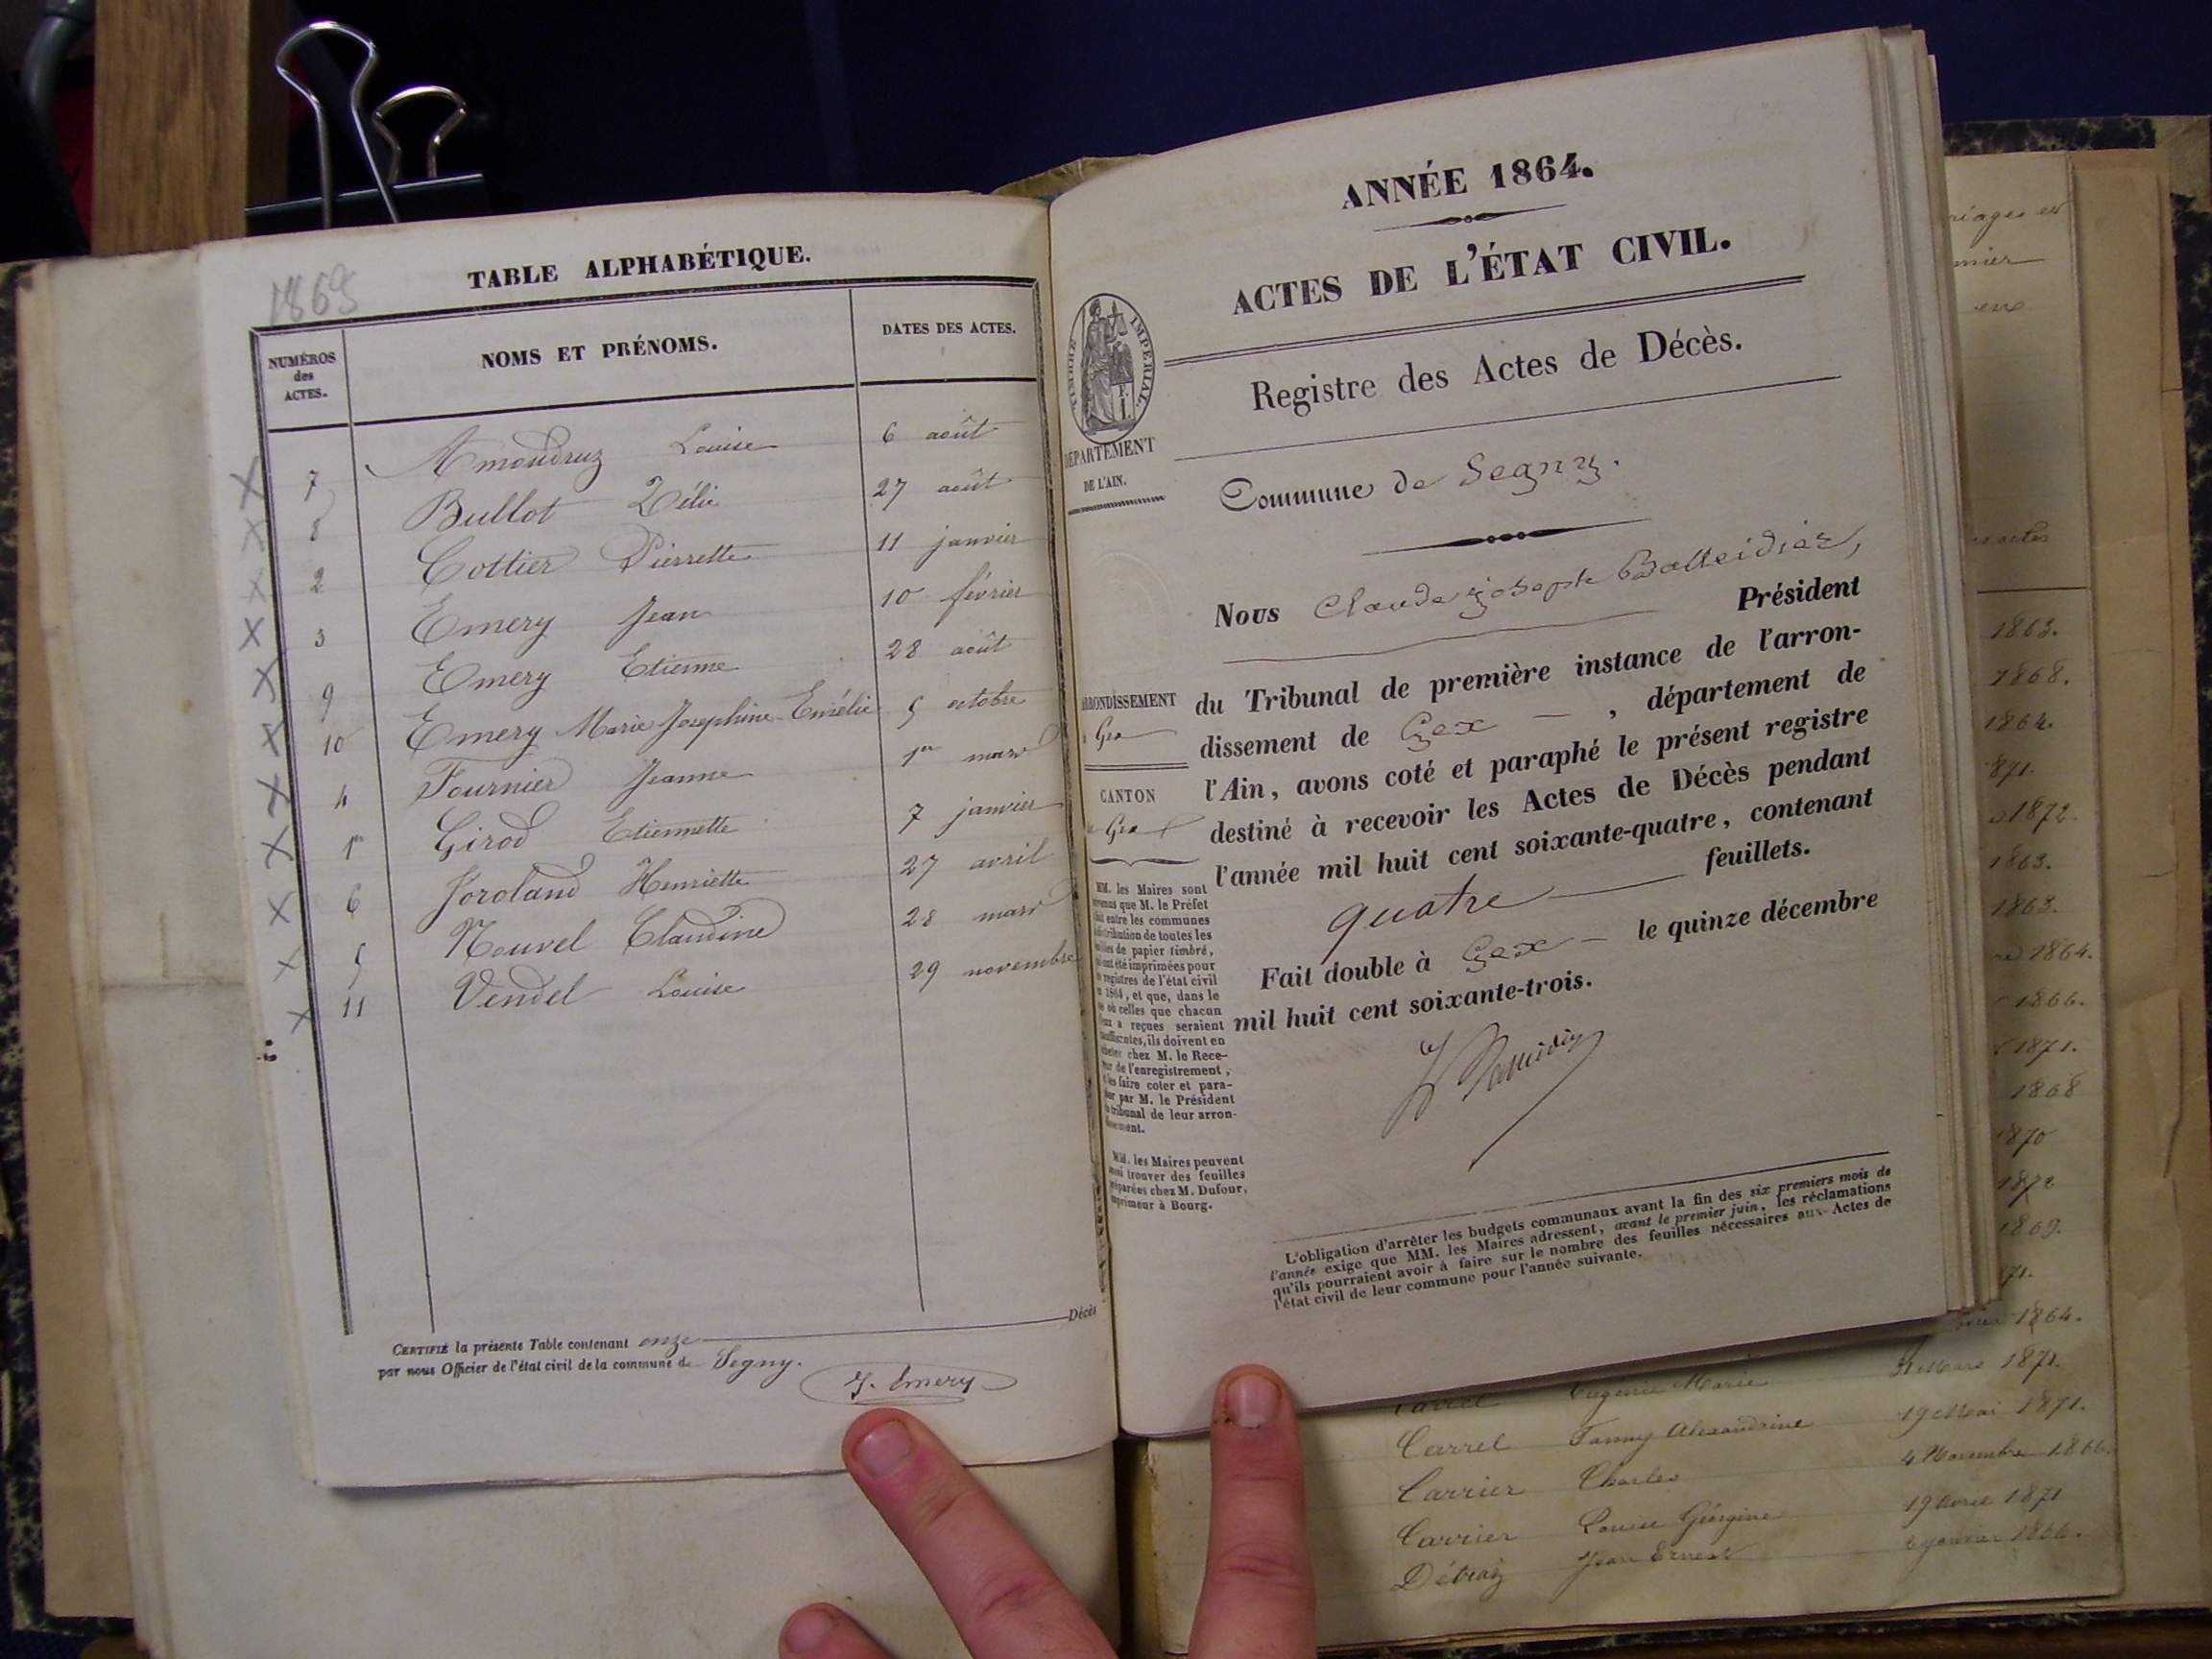 1863
TABLE ALPHABÉTIQUE.
NUMÉROS des ACTES. NOMS ET PRÉNOMS. DATES DES ACTES.
7 Amoudruz Louise 6 août
8 Bullot Zélie 27 août
2 Cottier Pierrette 11 janvier
3 Emery Jean 10 février
9 Emery Etienne 28 août
10 Emery Marie Josephine Emélie 5 octobre
4 Fournier Jeanne 1er mars
1er Girod Etiennette 7 janvier
6 Joroland Henriette 27 avril
5 Nouvel Claudine 28 mars
11 Vendel Louise 29 novembre
CERTIFIÉ la présente Table contenant onze Décès
par nous Officier de l'état civil de la commune de Segny.
J. Emery
ANNÉE 1864.
ACTES DE L'ÉTAT CIVIL.
TIMBRE IMPERIAL
Registre des Actes de Décès.
DÉPARTEMENT
DE L'AIN.
Commune de Segny.
Nous Claude joseph
Président
du Tribunal de première instance de l'arron-
dissement de Gex, département de
l'Ain, avons coté et paraphé le présent registre
destiné à recevoir les Actes de Décès pendant
l'année mil huit cent soixante-quatre, contenant
quatre feuillets.
Fait double à Gex le quinze décembre
mil huit cent soixante-trois.
ARRONDISSEMENT
Gex
CANTON
de Gex
MM. les Maires sont
que M. le Préfet
fait entre les communes
distribution de toutes les
de papier timbré,
ont été imprimées pour
registres de l'état civil
1864, et que, dans le
où celles que chacun
a reçues seraient
insuffisantes, ils doivent en
acheter chez M. le Rece-
veur de l'enregistrement,
les faire coter et para-
pher par M. le Président
tribunal de leur arron-
dissement.
MM. les Maires peuvent
aussi trouver des feuilles
préparées chez M. Dufour,
imprimeur à Bourg.
L'obligation d'arrêter les budgets communaux avant la fin des six premiers mois de
l'année exige que MM. les Maires adressent, avant le premier juin, les réclamations
qu'ils pourraient avoir à faire sur le nombre des feuilles nécessaires aux Actes de
l'état civil de leur commune pour l'année suivante.
actes
1863.
1868.
1864.
1872.
1863.
1863.
1864.
1866.
1871.
1868
1870
1872
1869.
71.
1864.
Eugenie Marie Mars 1871.
Carrel Fanny Alexandrine 19 Mai 1871.
Carrier Charles 4 Novembre 1866.
Carrier Louise Géorgine 19 Avril 1871
Détraz Jean Ernest 6 janvier 1866.